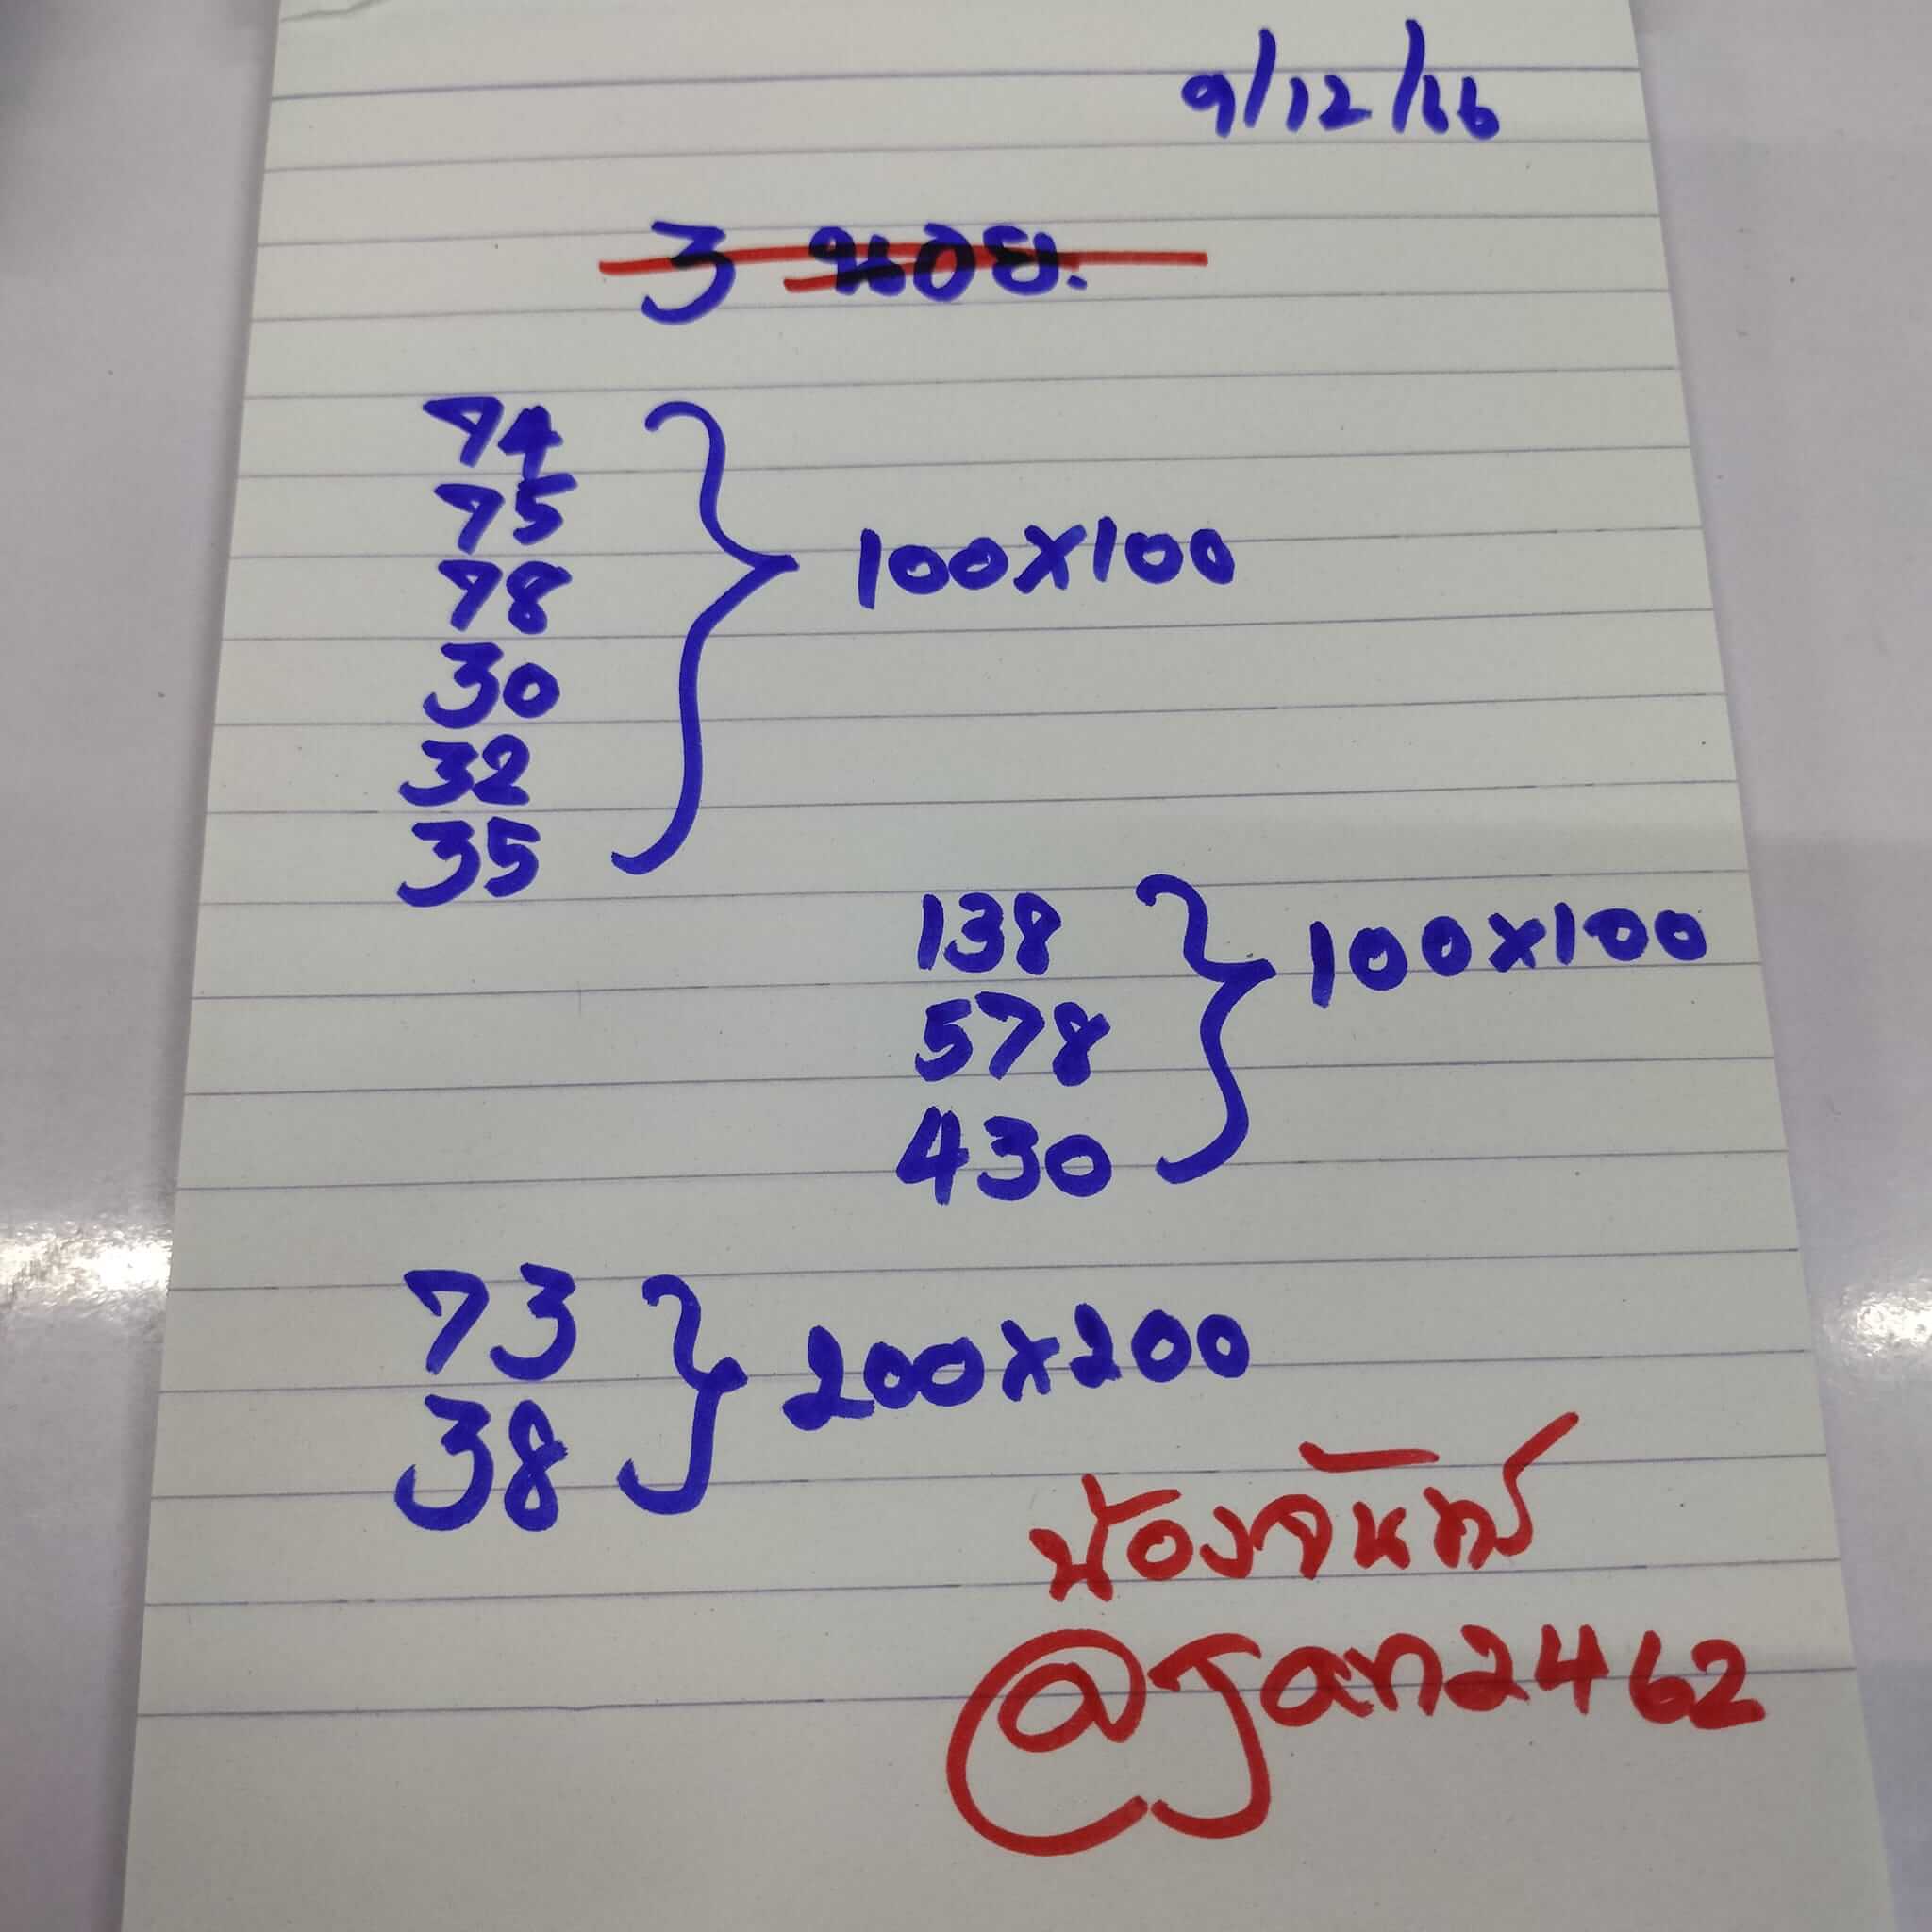 9/12/66
3 นอย.
74
75
78
30
32
35
100x100
138
578
430
100x100
73
38
200x200
น้องจันทร์
@Jan2462